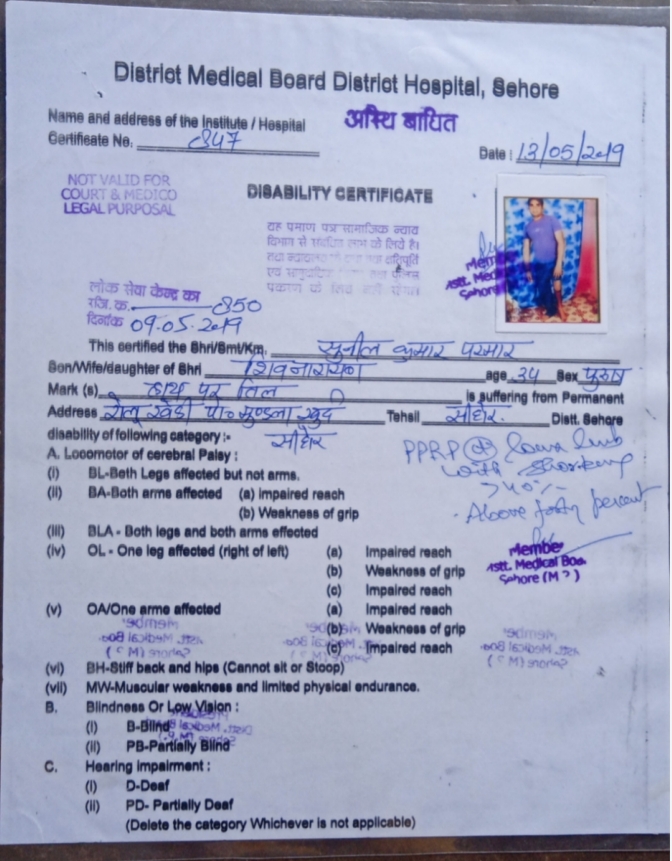 District Medical Board District Hospital, Sehore
Name and address of the Institute / Hospital
अस्थि बाधित
Certificate No. 847
Date : 13/05/2019
NOT VALID FOR
COURT & MEDICO
LEGAL PURPOSAL
DISABILITY CERTIFICATE
यह प्रमाण पत्र सामाजिक न्याय
विभाग से संबंधित लाभ के लिये है।
Member
Astt. Medical
Sehore
लोक सेवा केन्द्र का
रजि. क. 850
दिनांक 09.05.2019
This certified the Shri/Smt/Km. सुनील कुमार परमार
Son/Wife/daughter of Shri शिवनारायण age 34 Sex पुरुष
Mark (s) हाथ पर तिल is suffering from Permanent
Address खेडी पो० मुण्डला खुर्द Tehsil सीहोर. Distt. Sehore
disability of following category :- सीहोर
PPRP lower limb
with shortening
>40%
Above forty percent
A. Locomotor of cerebral Palsy :
(i) BL-Both Legs affected but not arms.
(ii) BA-Both arms affected (a) Impaired reach
(b) Weakness of grip
(iii) BLA - Both legs and both arms affected
(iv) OL - One leg affected (right of left) (a) Impaired reach
(b) Weakness of grip
(c) Impaired reach
Member
Astt. Medical Boa
Sehore (M ? )
(v) OA/One arme affected (a) Impaired reach
(b) Weakness of grip
(c) Impaired reach
(vi) BH-Stiff back and hips (Cannot sit or Stoop)
(vii) MW-Muscular weakness and limited physical endurance.
B. Blindness Or Low Vision :
(i) B-Blind
(ii) PB-Partially Blind
C. Hearing impairment :
(i) D-Deaf
(ii) PD- Partially Deaf
(Delete the category Whichever is not applicable)